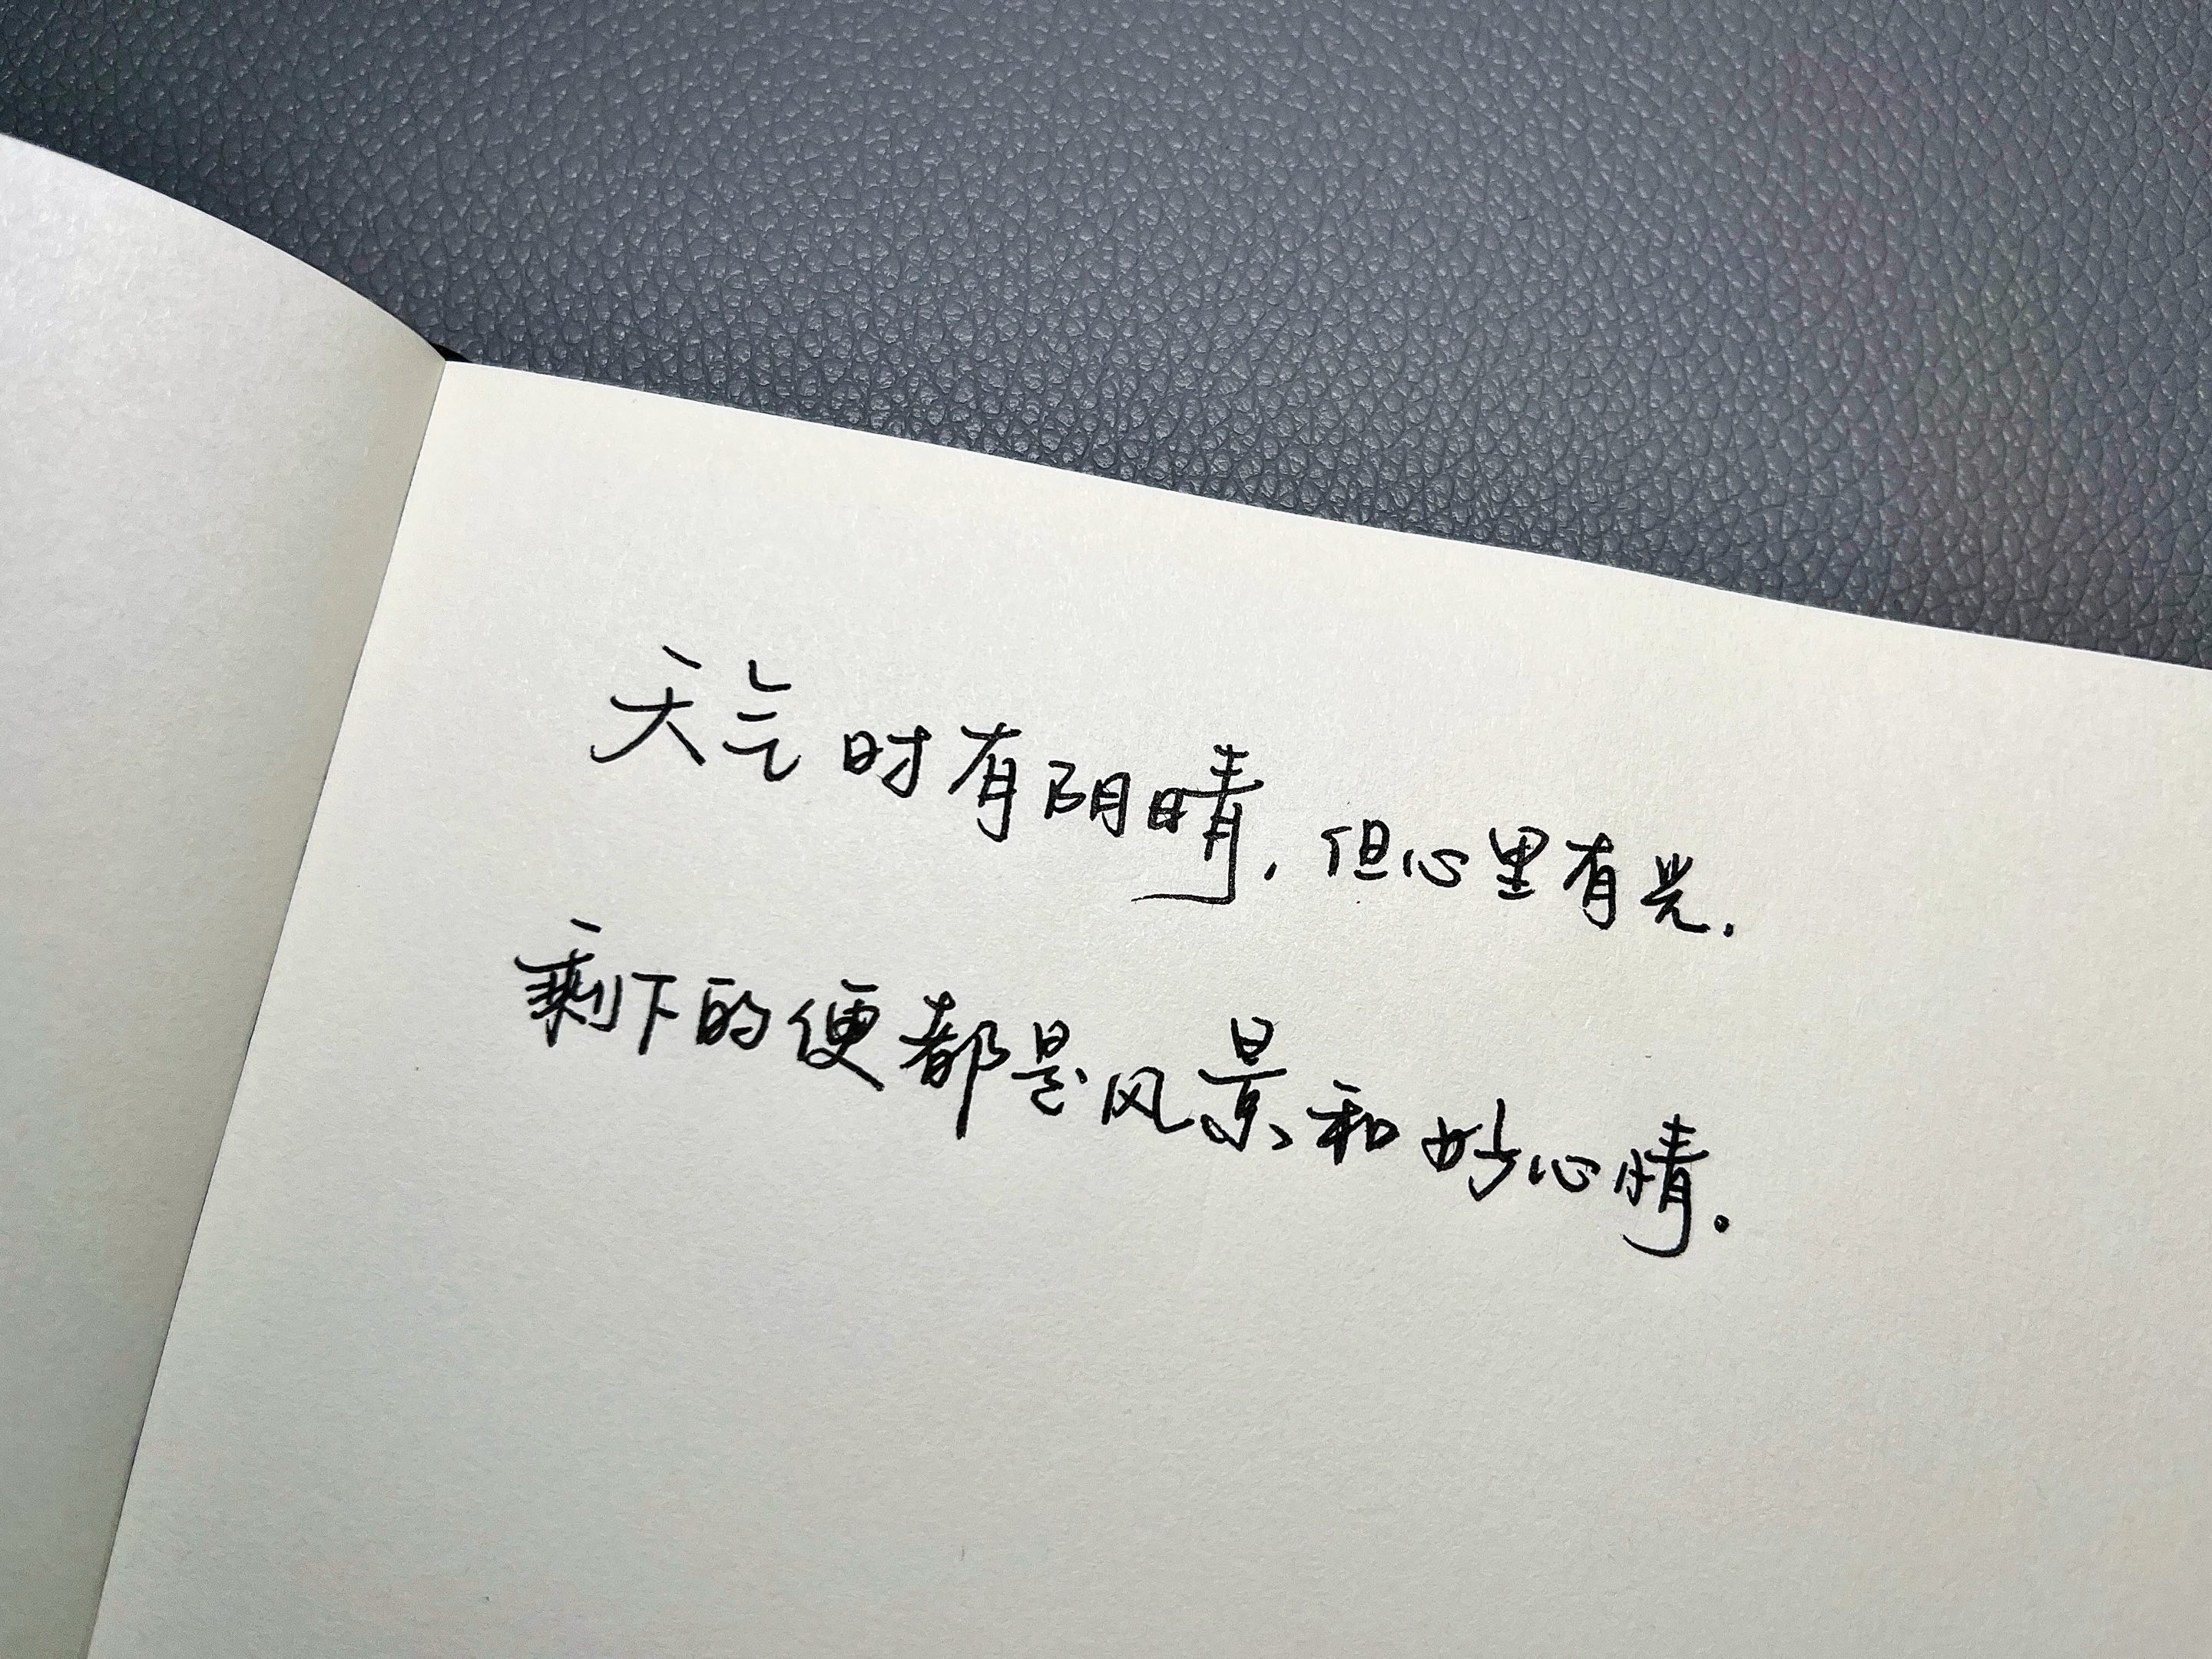 天气时有阴晴，但心里有光．
剩下的便都是风景和好心情。